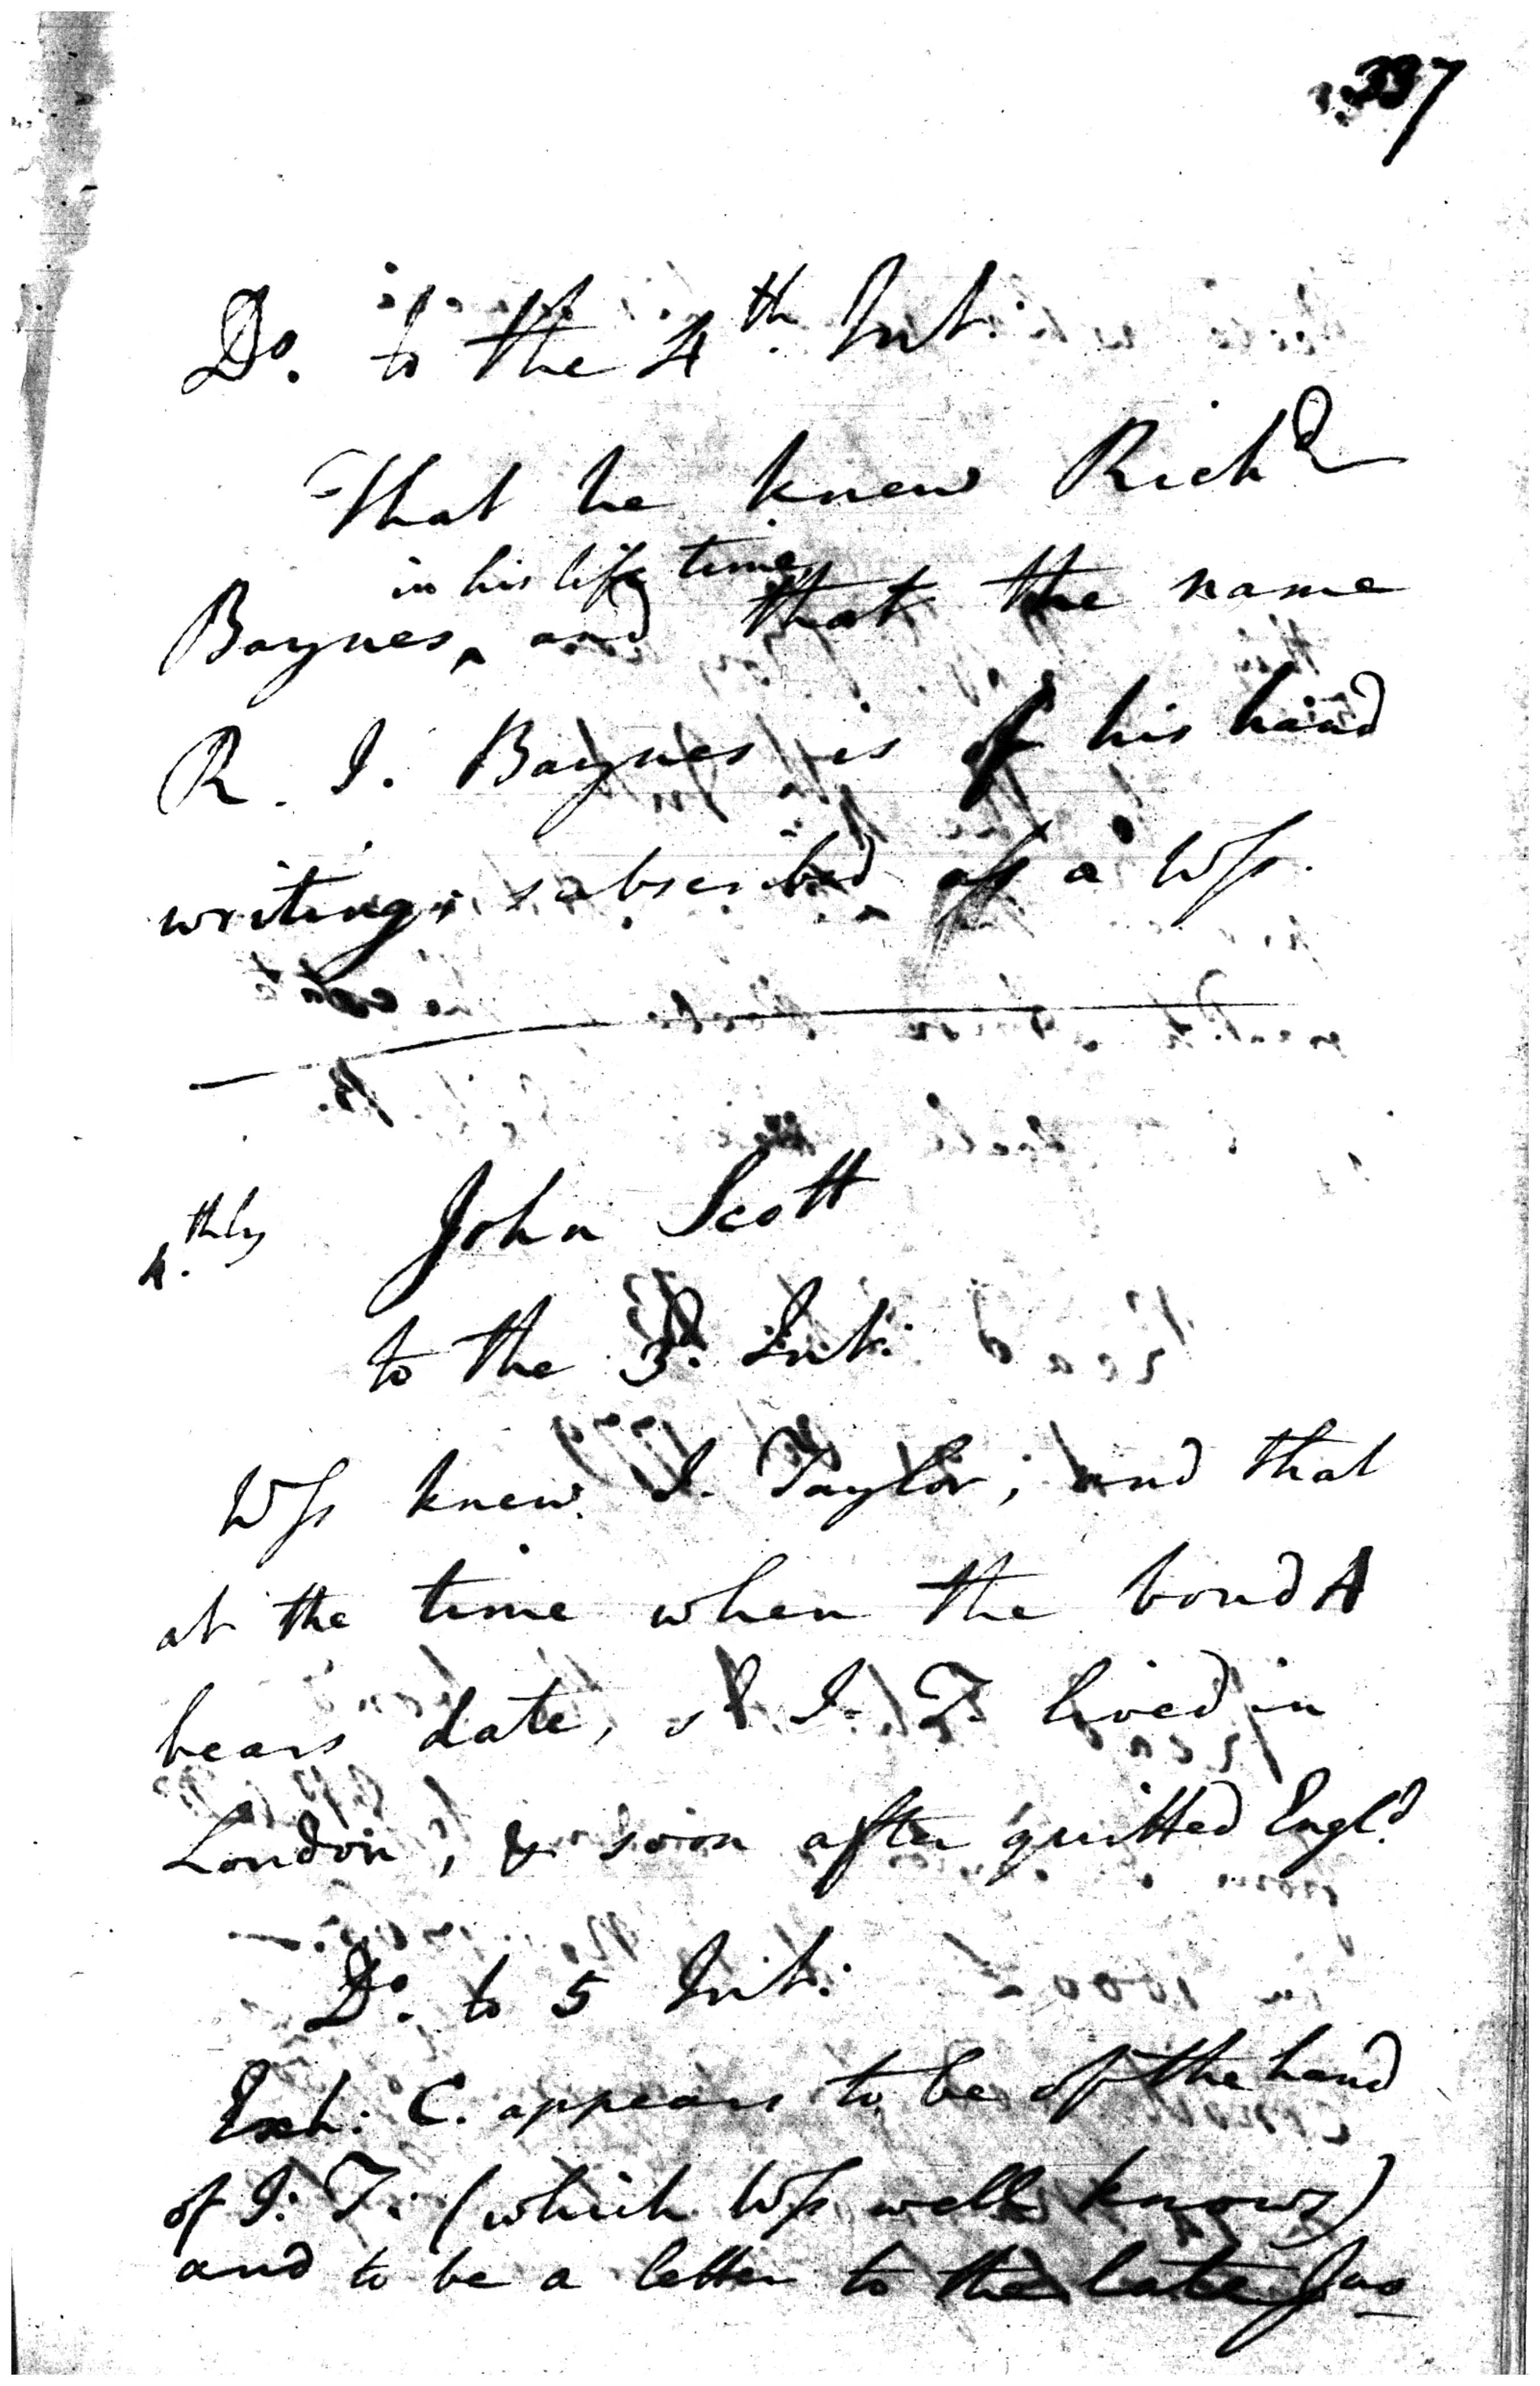 337
Do. to the 4th Int.
That he knew Richd
in his life time
Baynes, ^ and that the name
R. I. Baynes is of his hand
writing, subscribed as a Wss.
4.thly John Scott
to the 3d. Int.
Wss knew I. Taylor; and that
at the time when the bond A
bears date, sd I. T. lived in
London, & soon after quitted Engld.
Do. to 5 Int.
Exh: C. appears to be of the hand
of I. T. (which Wss well knows)
and to be a letter to the late Jas